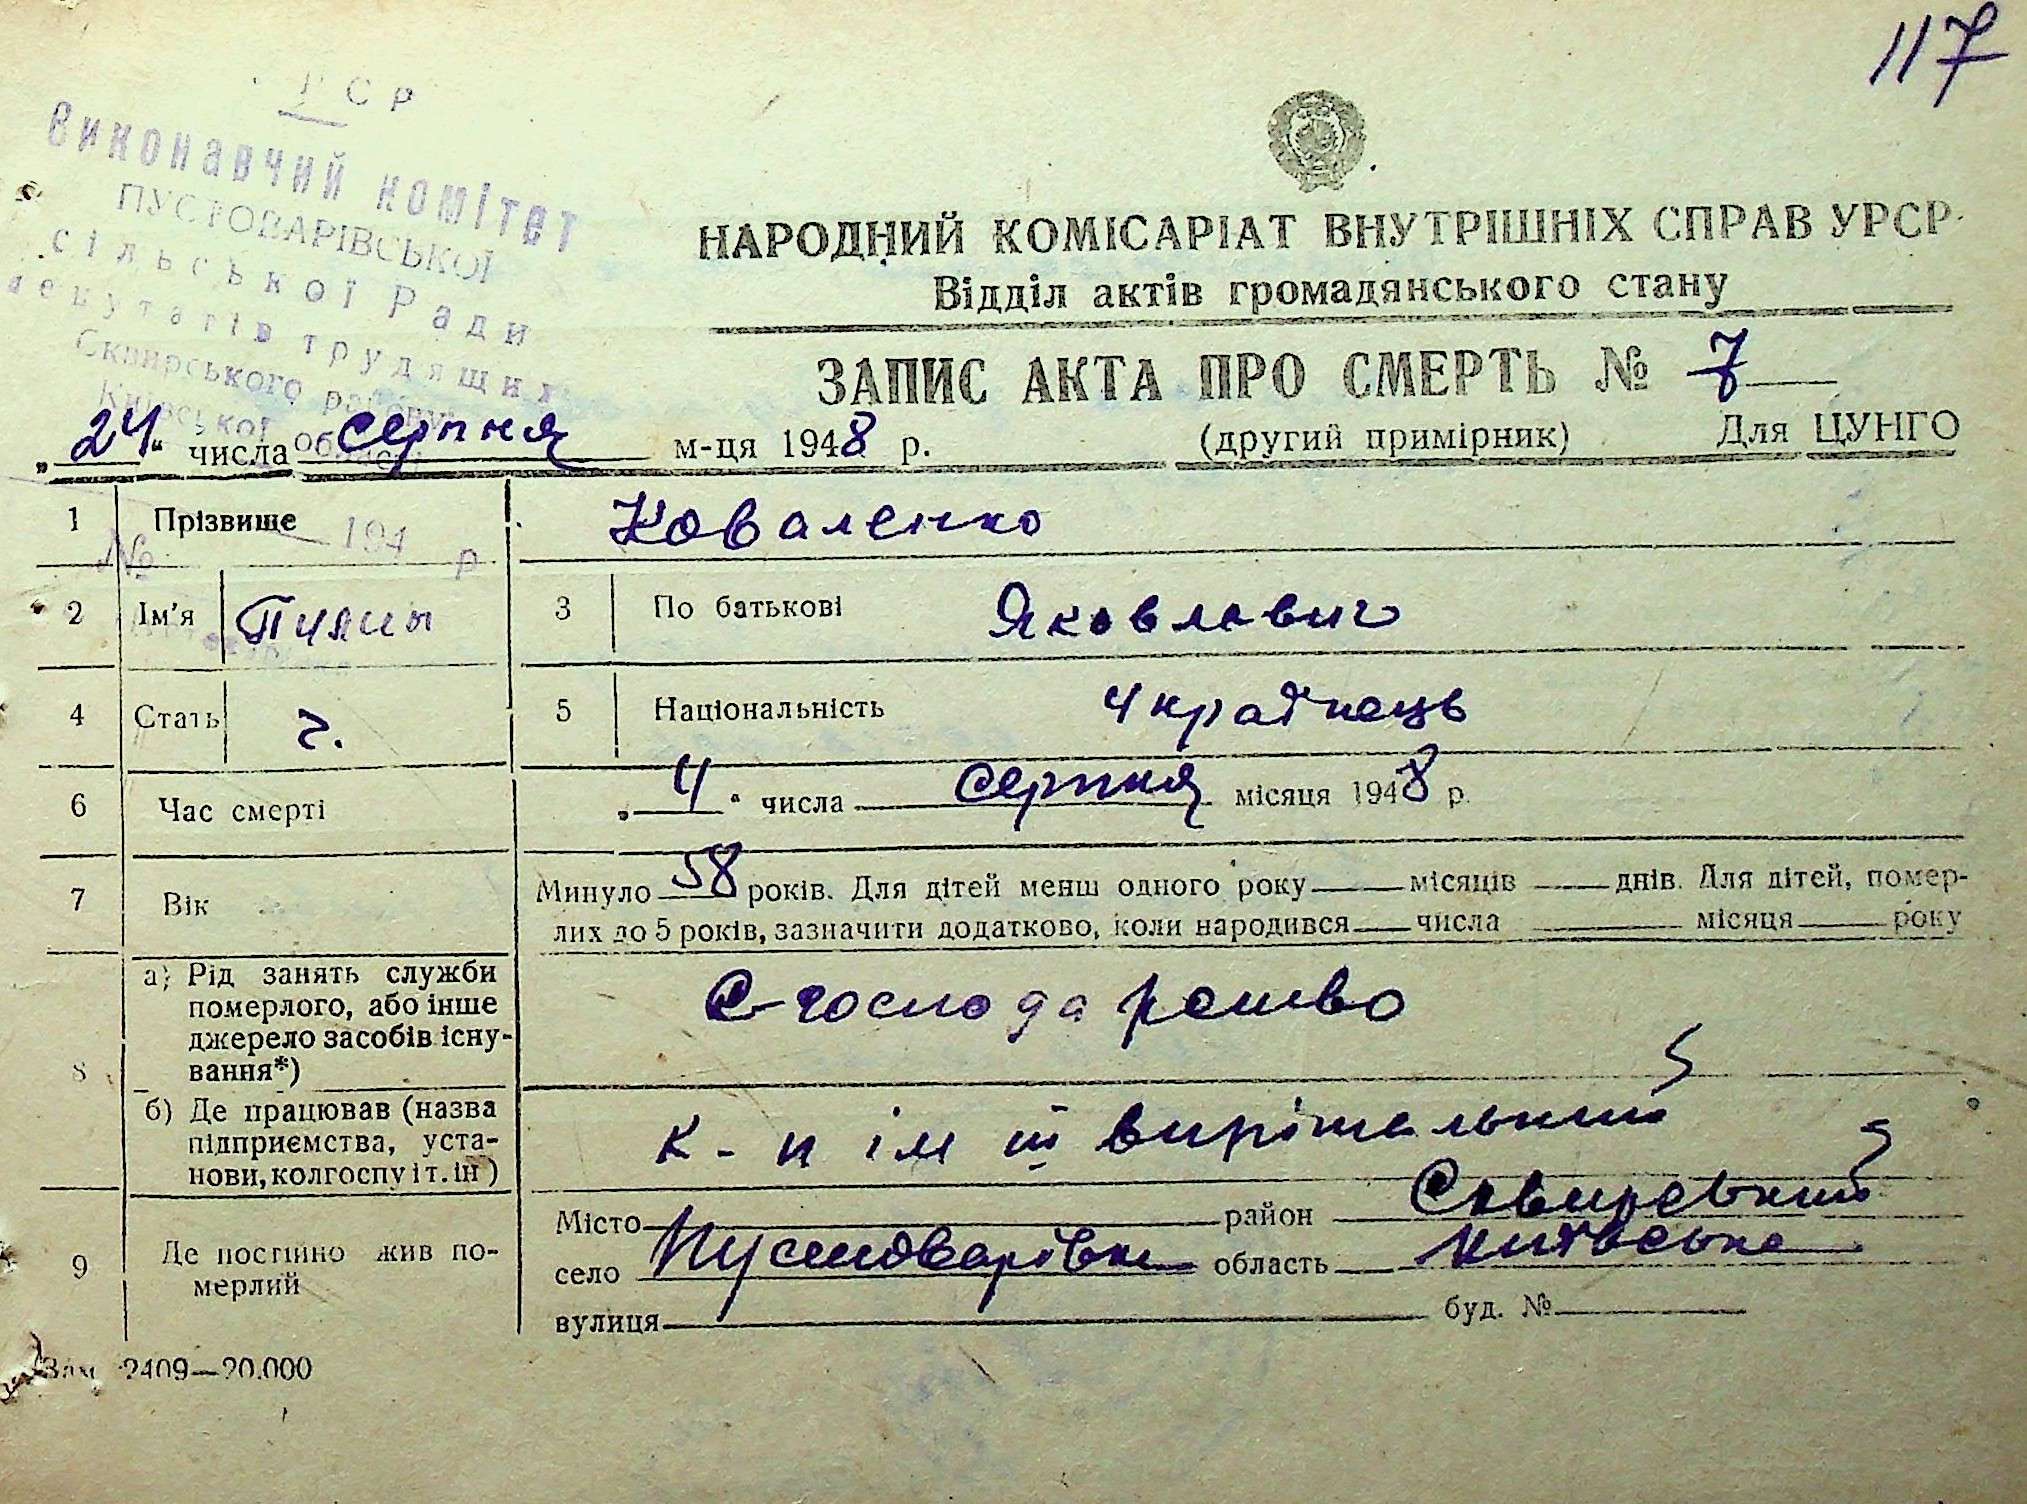 117
РСР
Виконавчий комітет
ПУСТОВАРІВСЬКОЇ
сільської Ради
депутатів трудящих
Сквирського району
Київської області
№ 194 р
НАРОДНИЙ КОМІСАРІАТ ВНУТРІШНІХ СПРАВ УРСР
Відділ актів громадянського стану
ЗАПИС АКТА ПРО СМЕРТЬ № 7
„24“ числа серпня м-ця 1948 р. (другий примірник) Для ЦУНГО
1 Прізвище Коваленко
2 Ім'я 3 По батькові Яковлевич
4 Стать ч. 5 Національність Українець
6 Час смерті „4“ числа серпня місяця 1948 р.
7 Вік Минуло 58 років. Для дітей менш одного року місяців днів. Для дітей, помер-
лих до 5 років, зазначити додатково, коли народився числа місяця року
8 а) Рід занять служби
померлого, або інше
джерело засобів існу-
вання*)
С-господарство
б) Де працював (назва
підприємства, уста-
нови, колгоспу і т. ін)
к-п ім ІІІ вирішальний
9 Де постійно жив по-
мерлий
Місто район Сквирський
село Пустоварівка область Київська
вулиця буд. №
Зам. 2409—20.000